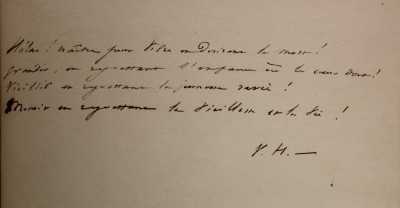 Hélas ! naître pour vivre en désirant la mort !
Grandir, en regrettant l'enfance où le cœur dort !
Vieillir en regrettant la jeunesse ravie !
Mourir en regrettant la vieillesse et la vie !
V. H. —